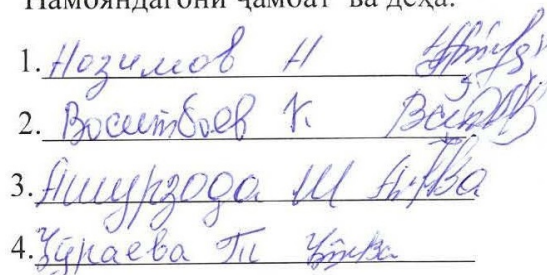 Намояндагони ҷамоат ва деҳа:
1. Нозимов Н
2. Воситбоев К
3. Ашурзода Ш
4. Ҷӯраева Т